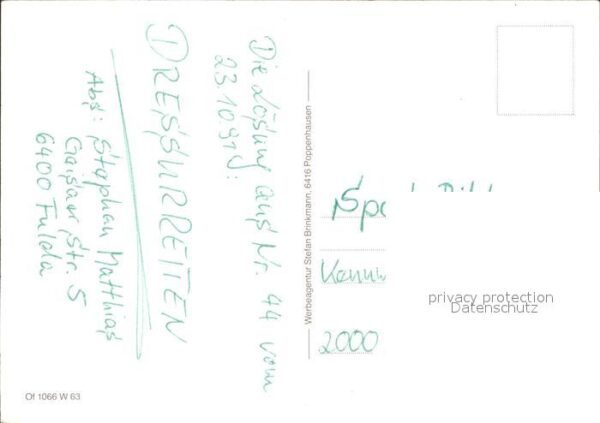 Die Lösung aus Nr. 44 vom
23.10.91:
DRESSURREITEN
Abs: Stephan Matthias
Str. 5
6400 Fulda
Werbeagentur Stefan Brinkmann, 6416 Poppenhausen
2000
privacy protection
Datenschutz
Of 1066 W 63